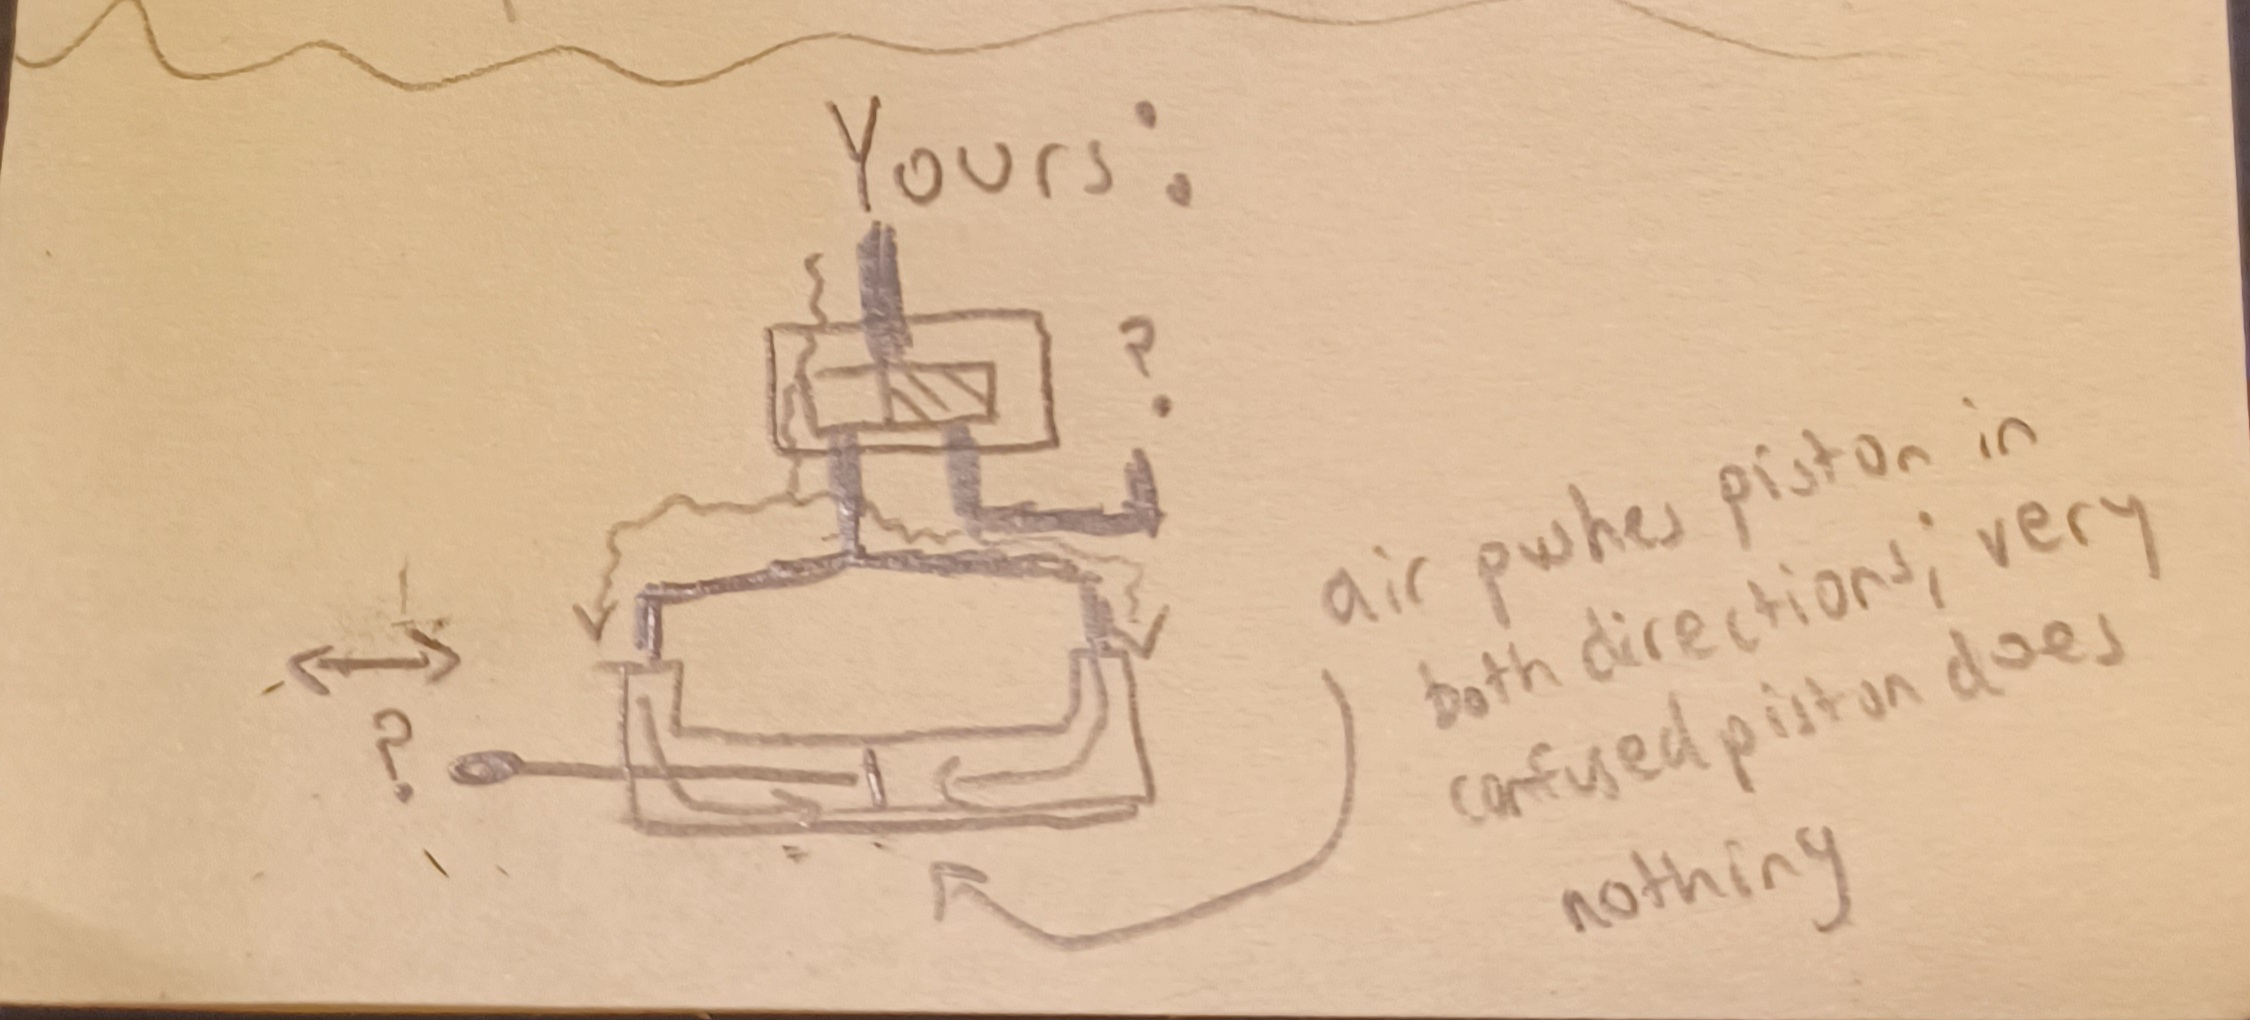 Yours:
?
air pushes piston in
both directions; very
confused piston does
nothing
?